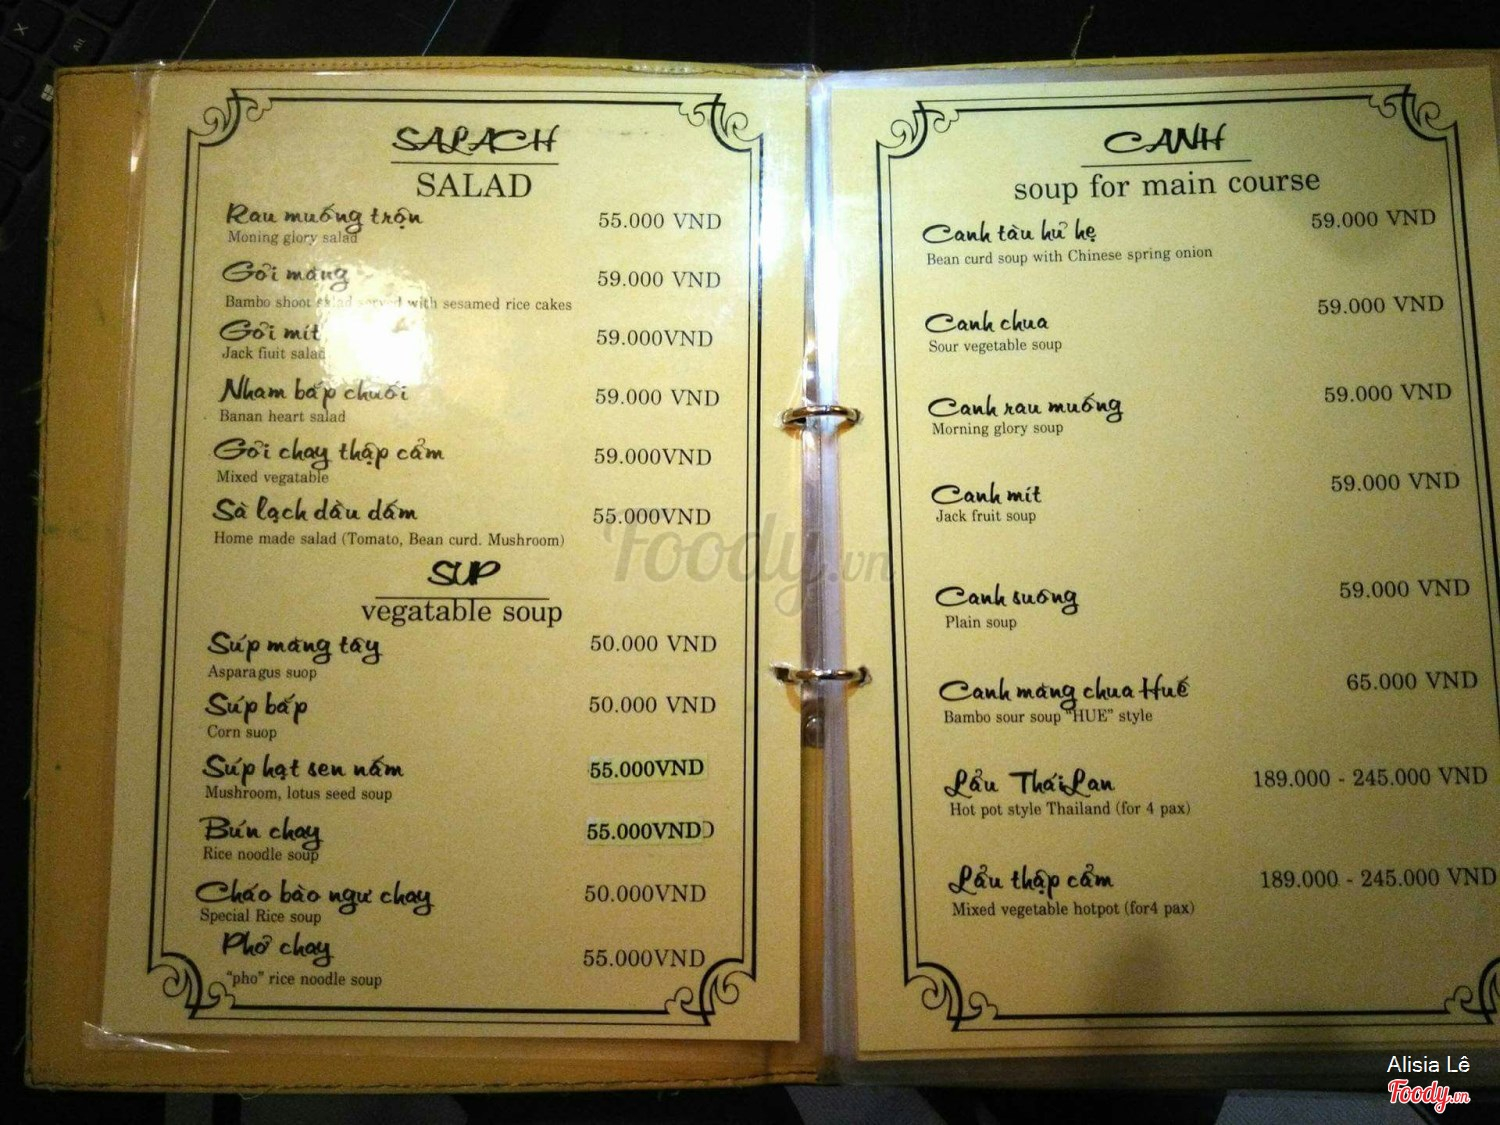 SALACH
SALAD
Rau muống trộn 55.000 VND
Moning glory salad
Gỏi măng 59.000 VND
Bambo shoot salad served with sesamed rice cakes
Gỏi mít 59.000VND
Jack fiuit salad
Nham bắp chuối 59.000 VND
Banan heart salad
Gỏi chay thập cẩm 59.000VND
Mixed vegatable
Sà lạch dầu dấm 55.000VND
Home made salad (Tomato, Bean curd. Mushroom)
SUP
vegatable soup
Súp măng tây 50.000 VND
Asparagus suop
Súp bắp 50.000 VND
Corn suop
Súp hạt sen nấm 55.000VND
Mushroom, lotus seed soup
Bún chay 55.000VND
Rice noodle soup
Cháo bào ngư chay 50.000VND
Special Rice soup
Phở chay 55.000VND
"pho" rice noodle soup
CANH
soup for main course
Canh tàu hủ hẹ 59.000 VND
Bean curd soup with Chinese spring onion
Canh chua 59.000 VND
Sour vegetable soup
Canh rau muống 59.000 VND
Morning glory soup
Canh mít 59.000 VND
Jack fruit soup
Canh suông 59.000 VND
Plain soup
Canh măng chua Huế 65.000 VND
Bambo sour soup "HUE" style
Lẩu TháiLan 189.000 - 245.000 VND
Hot pot style Thailand (for 4 pax)
Lẩu thập cẩm 189.000 - 245.000 VND
Mixed vegetable hotpot (for4 pax)
Foody.vn
Alisia Lê
Foody.vn